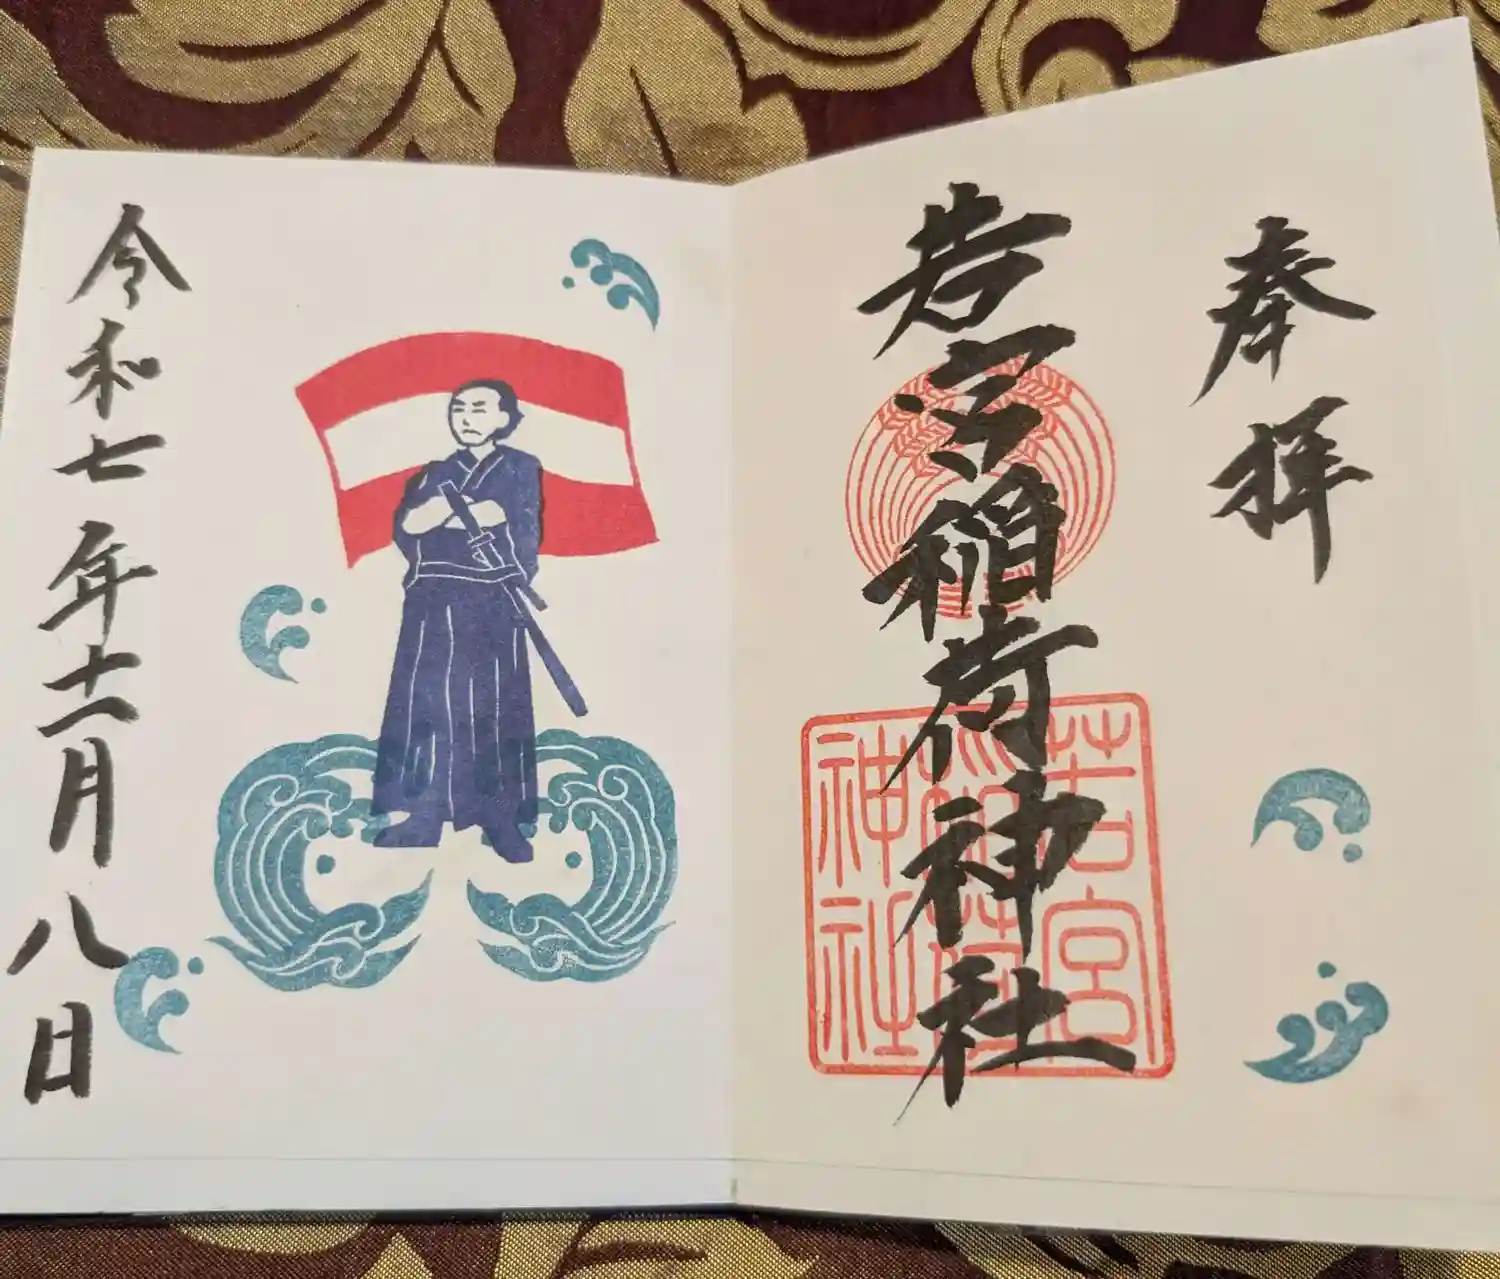 奉拝
若宮稲荷神社
若宮
稲荷
神社
令和七年十一月八日